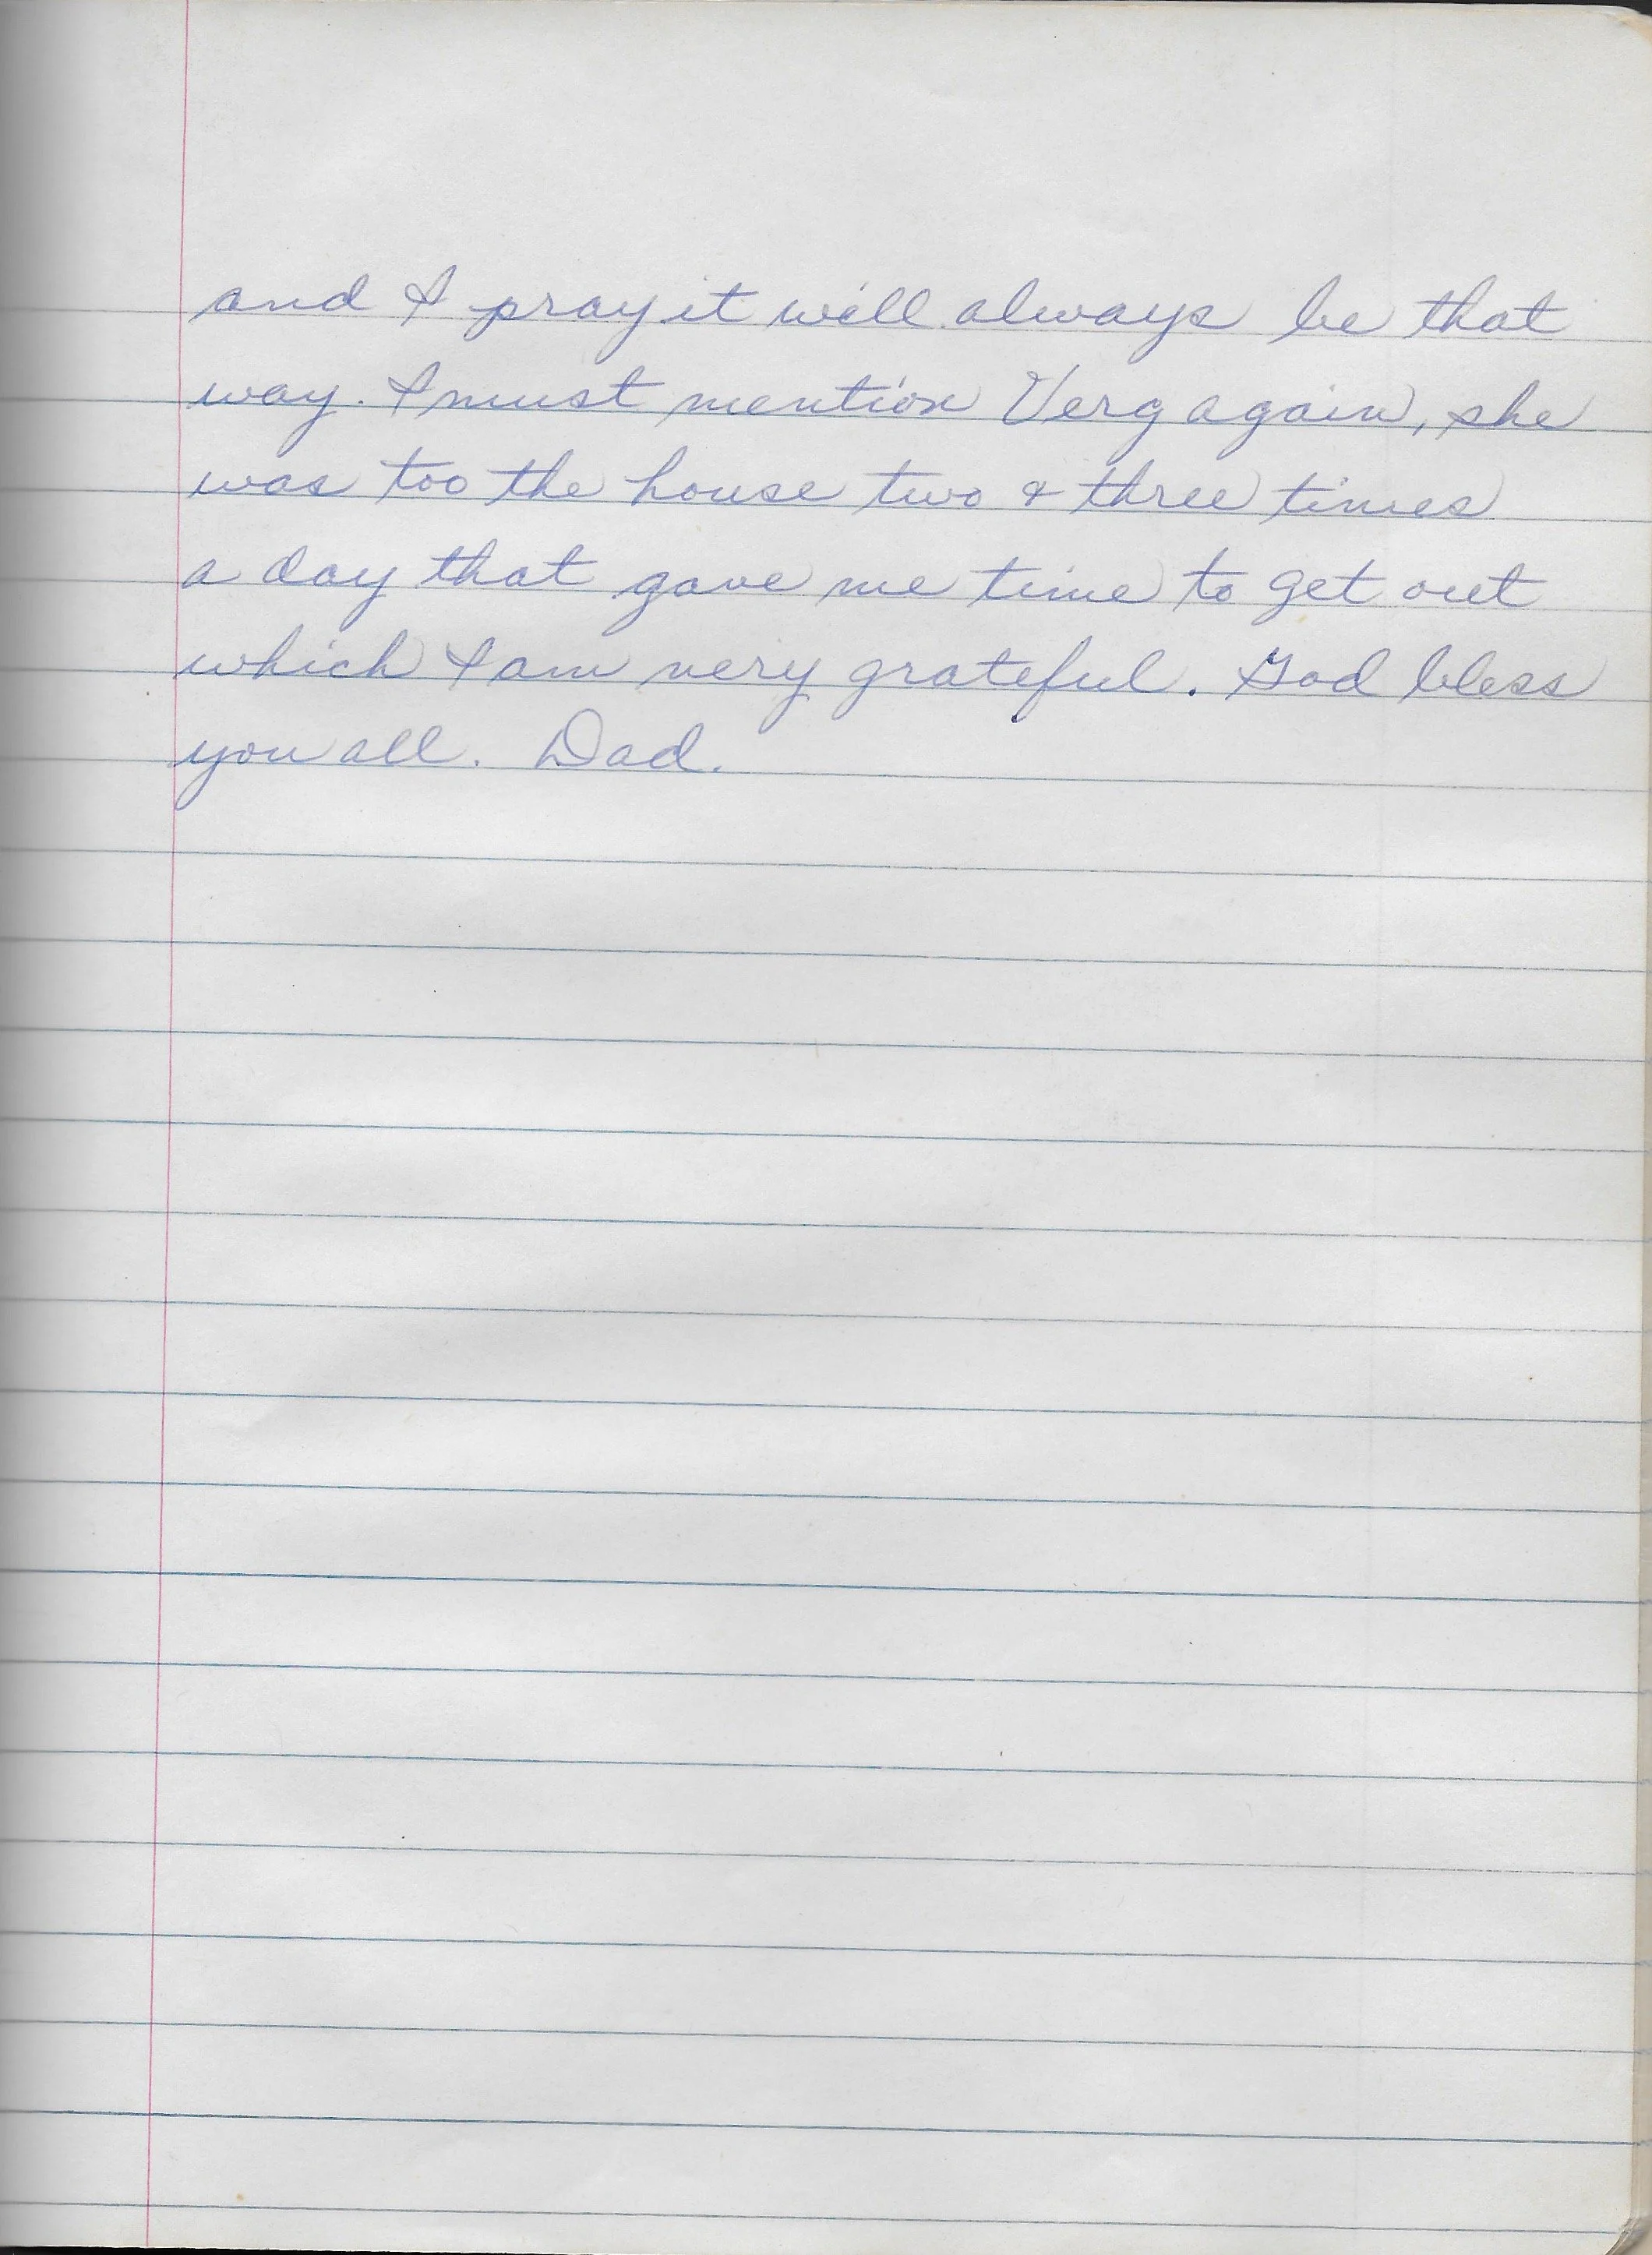 and I pray it will always be that
way. I must mention Verg again, she
was too the house two & three times
a day that gave me time to get out
which I am very grateful. God bless
you all. Dad.